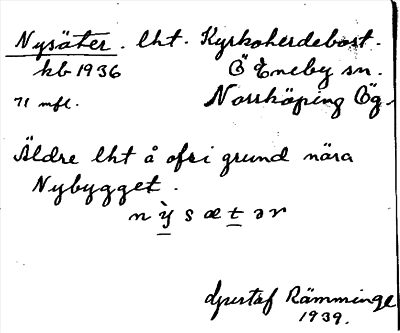 Nysäter. lht. Kyrkoherdebost.
kb 1936 Ö Eneby sn.
71 mfl. Norrköping Ög.
Äldre lht å ofri grund nära
Nybygget.
n ỳ s æ t ə r
Gustaf Rämminge
1939.